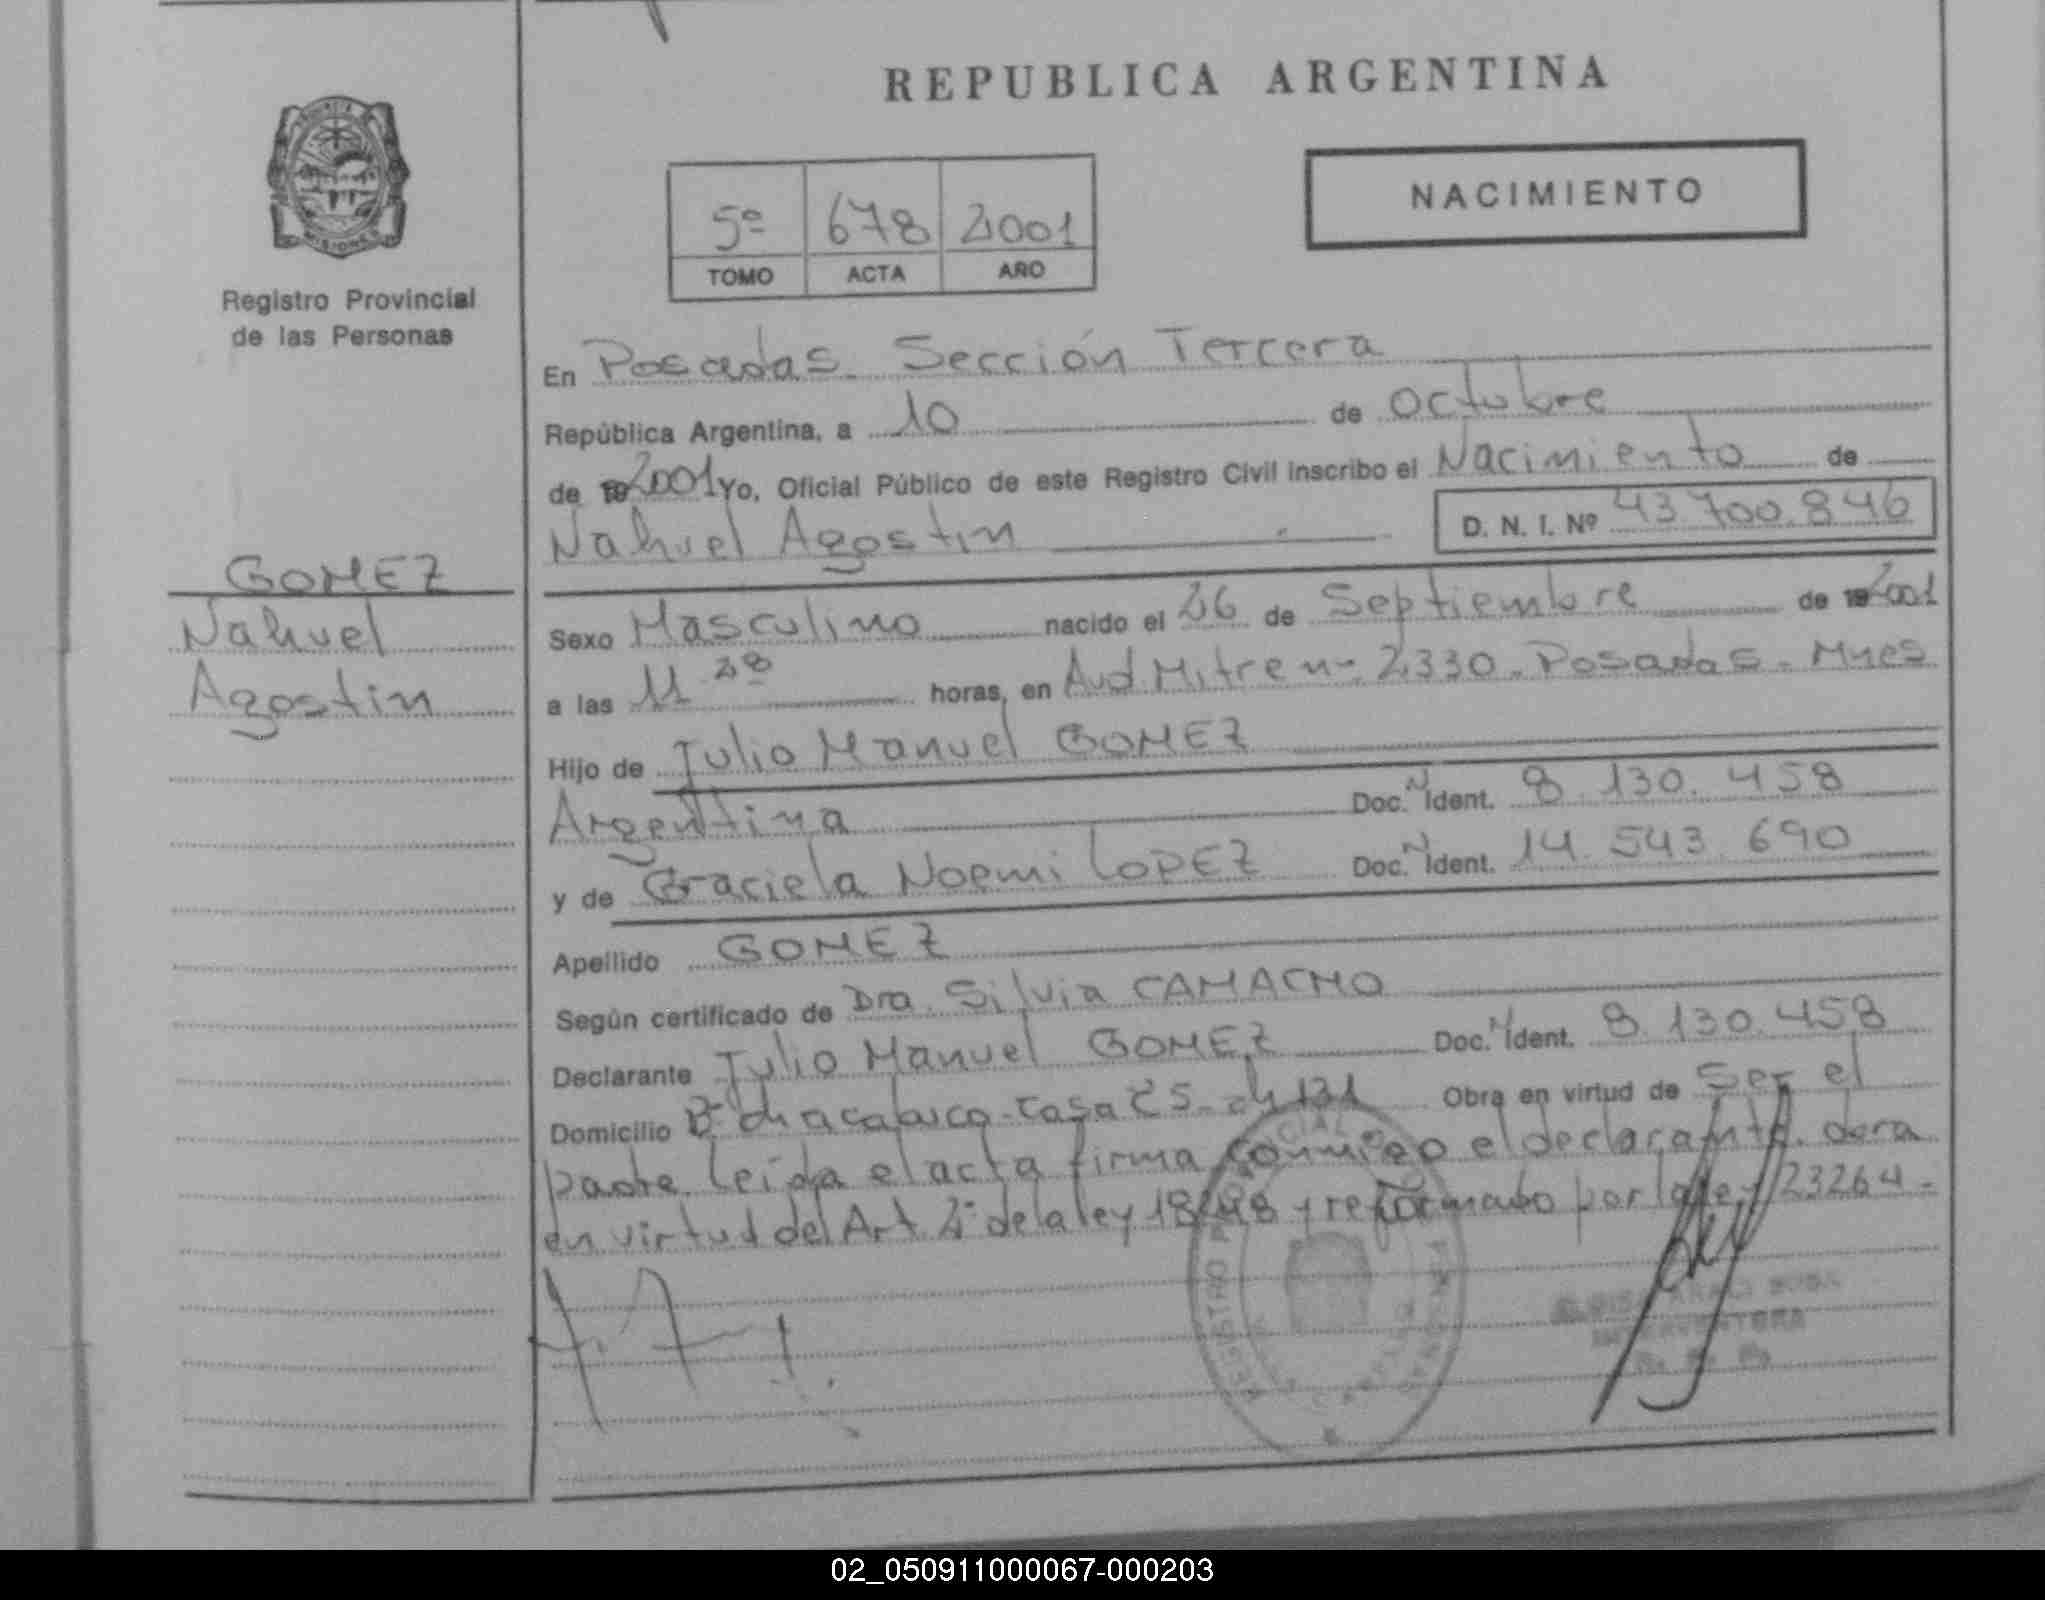 REPUBLICA ARGENTINA
NACIMIENTO
5º 678 2001
TOMO ACTA AÑO
MISIONES
Registro Provincial
de las Personas
GOMEZ
Nahuel
Agostin
En Posadas. Sección Tercera
República Argentina, a 10 de Octubre
de 2001 yo, Oficial Público de este Registro Civil inscribo el Nacimiento de
Nahuel Agostin D. N. I. Nº 43.700.846
Sexo Masculino nacido el 26 de Septiembre de 2001
a las 11 28 horas, en Avd. Mitre nº 2330. Posadas. Mnes
Hijo de Julio Manuel GOMEZ
Argentina Doc. N Ident. 8.130.458
y de Graciela Noemi LOPEZ Doc. N Ident. 14.543.690
Apellido GOMEZ
Según certificado de Dra. Silvia CAMACHO
Declarante Julio Manuel GOMEZ Doc. N Ident. 8.130.458
Domicilio Bº Chacabuco - Casa 25 - Ch 131 Obra en virtud de Ser el
padre. Leída el acta firma conmigo el declarante.
en virtud del Art 2º de la ley 18248 y reformado por la ley 23264 -
INTERVENTORA
02_050911000067-000203